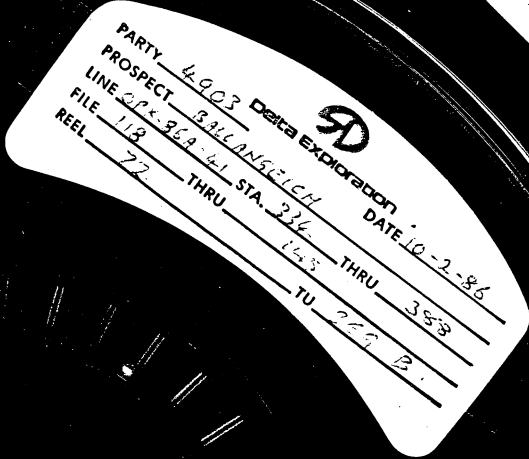 Delta Exploration
PARTY 4903 DATE 10-2-86
PROSPECT BALLANGEICH
LINE OPX-86A-41 STA. 334 THRU 388
FILE 118 THRU 145
REEL 72 TU 269 B.